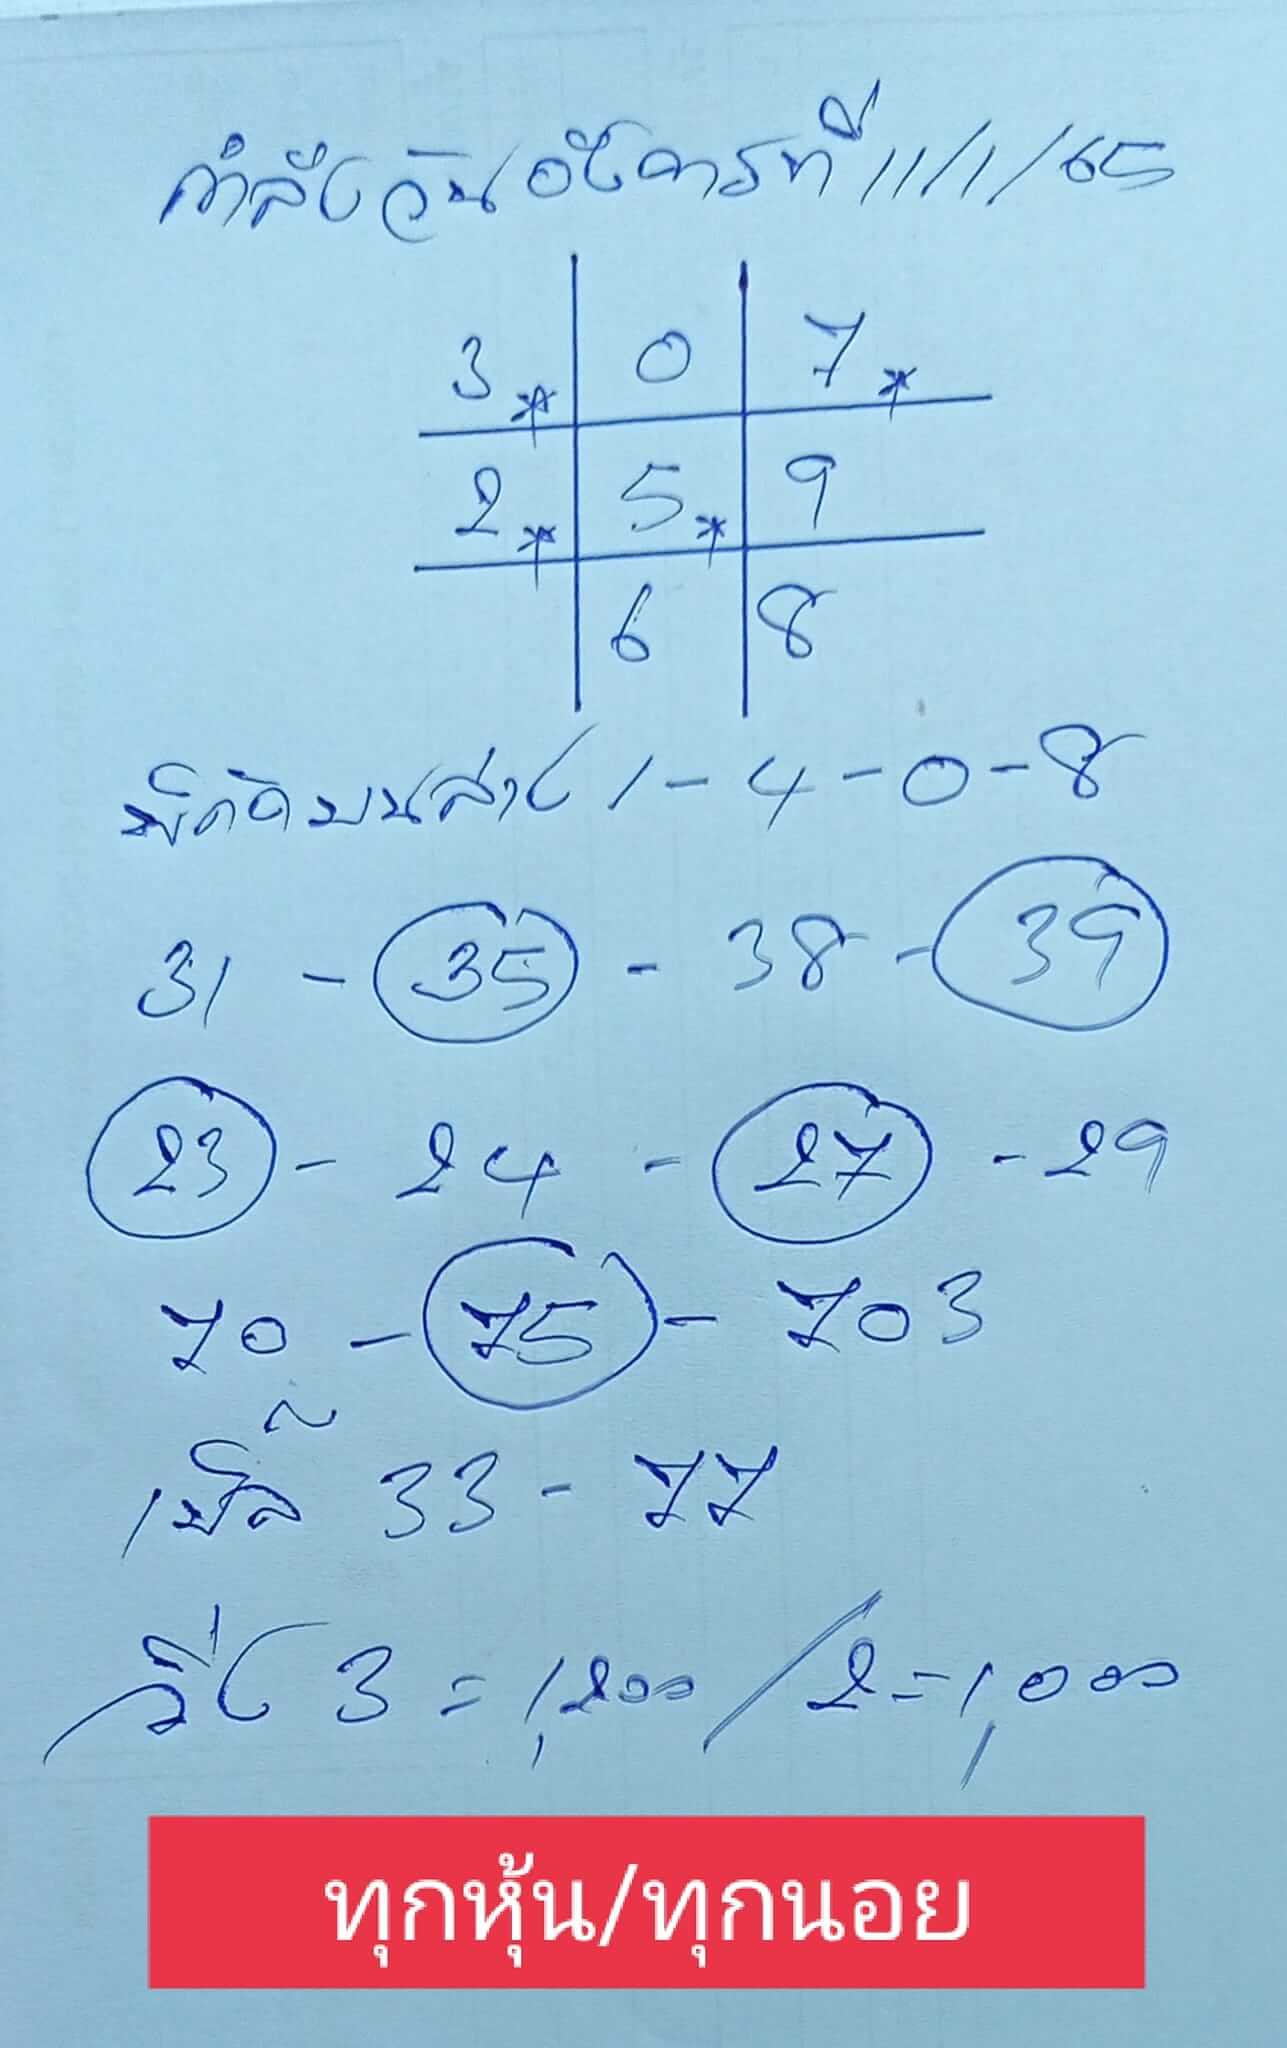 กำลังวันอังคารที่ 11/1/65
3* 0 7*
2* 5* 9
6 8
พิกัดบนล่าง 1-4-0-8
31 - 35 - 38 - 39
23 - 24 - 27 - 29
70 - 75 - 703
เบิ้ล 33 - 77
วิ่ง 3 = 1,200 / 2 = 1,000
ทุกหุ้น/ทุกนอย